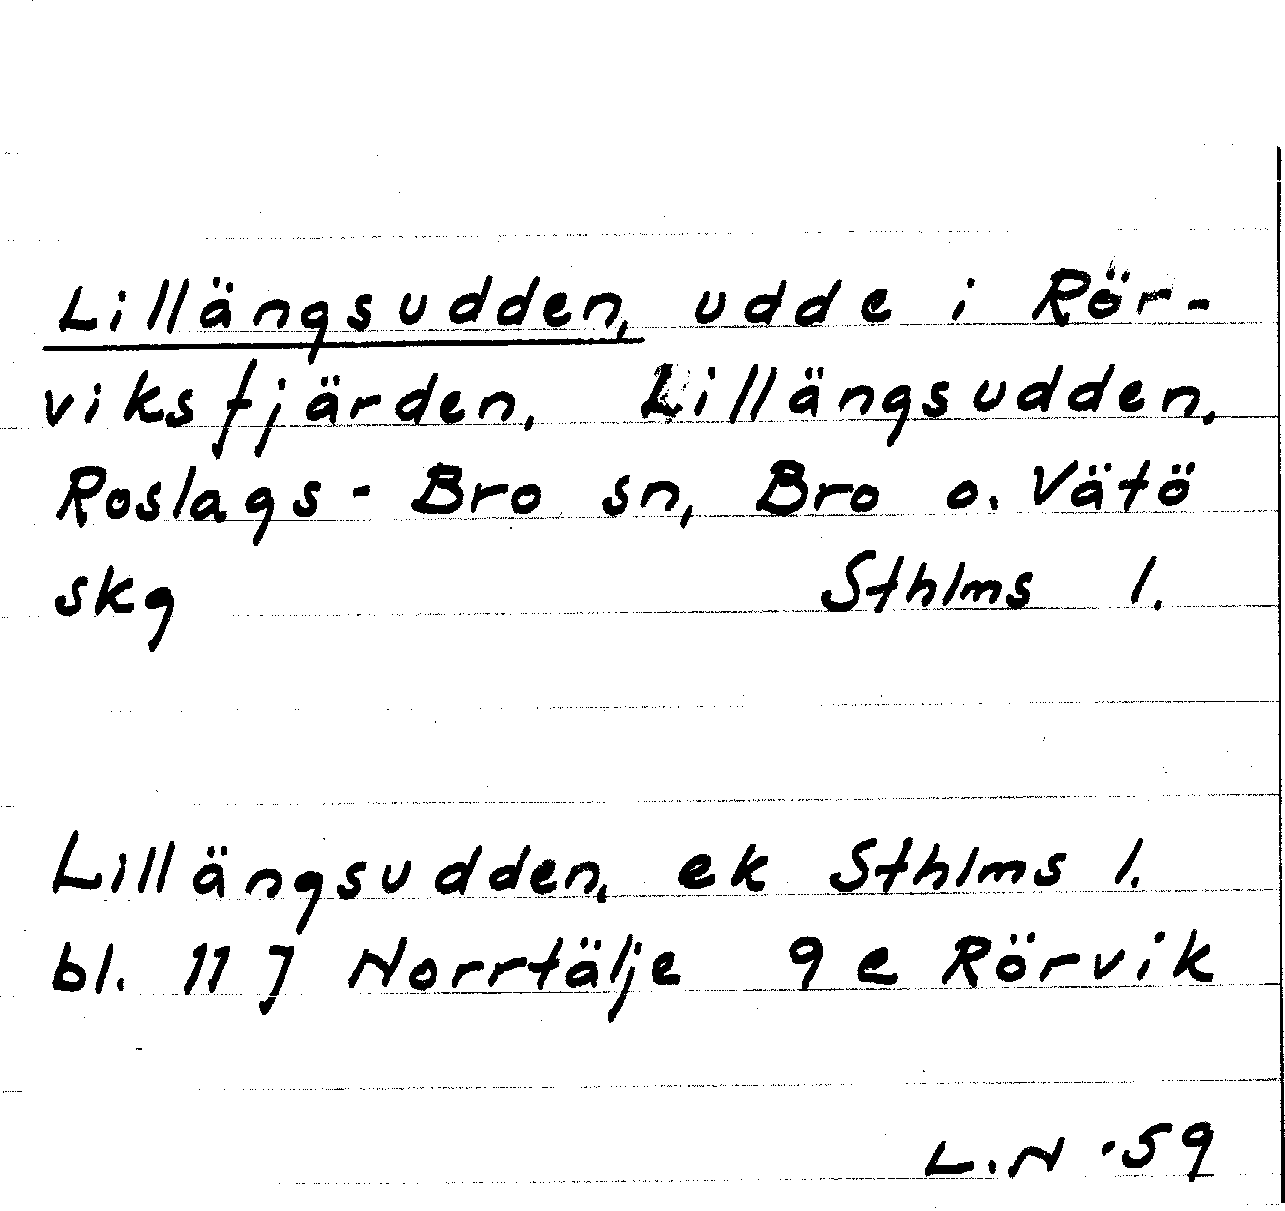 Lillängsudden, udde i Rör-
viksfjärden, Lillängsudden,
Roslags-Bro sn, Bro o. Vätö
skg Sthlms l.
Lillängsudden, ek Sthlms l.
bl. 11 J Norrtälje 9 e Rörvik
L.N -59